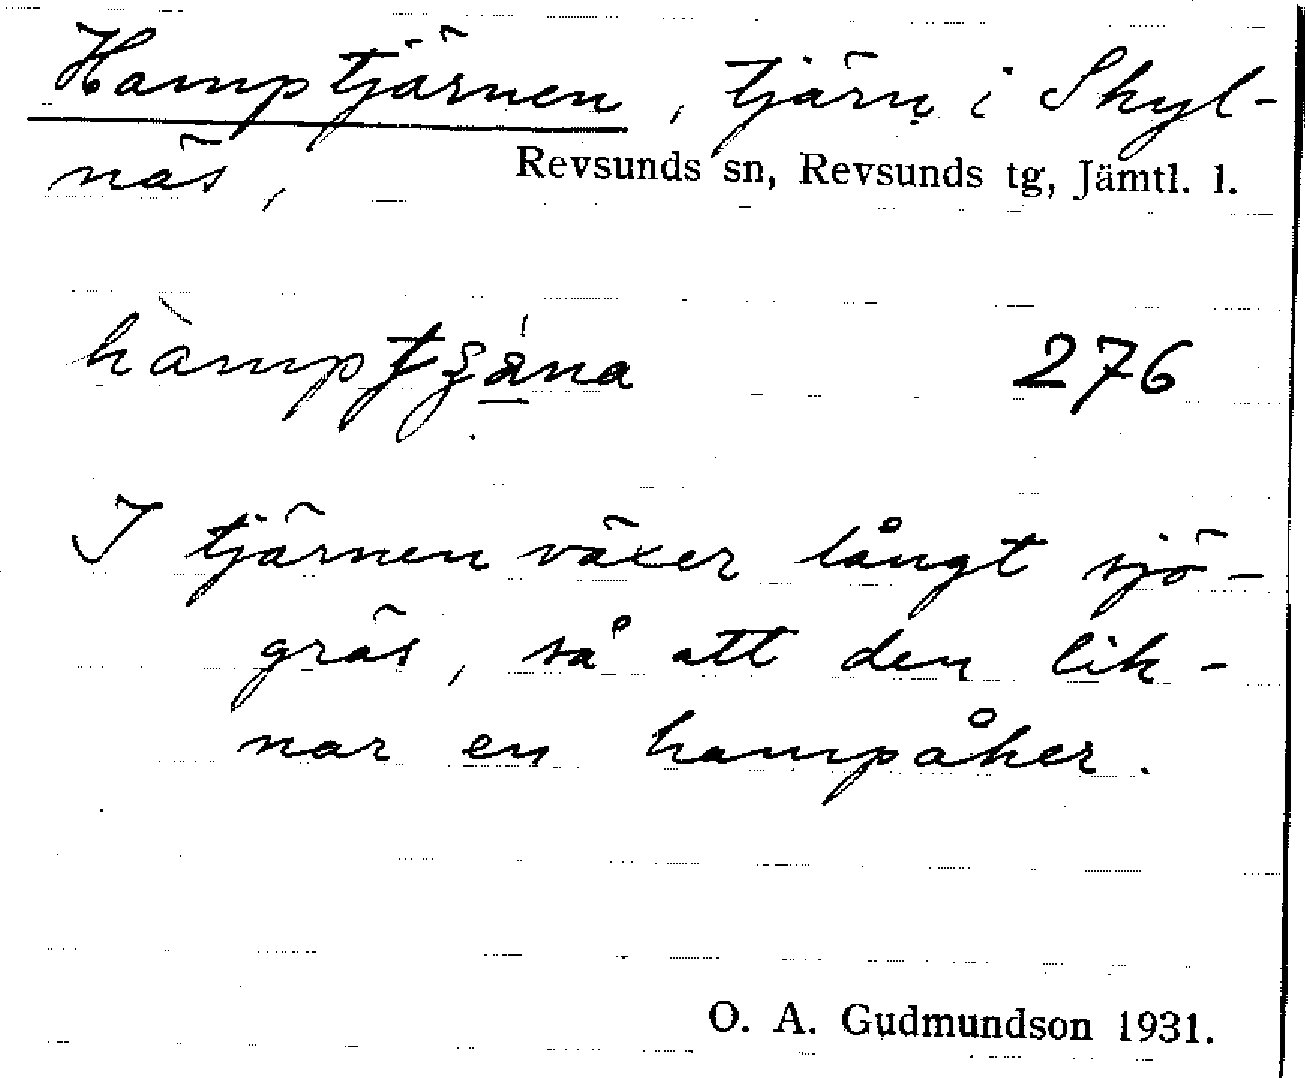 Hamptjärnen, tjärn i Skyl-
näs,
Revsunds sn, Revsunds tg, Jämtl. l.
276
I tjärnen växer långt sjö-
gräs, så att den lik-
nar en hampåker.
O. A. Gudmundson 1931.